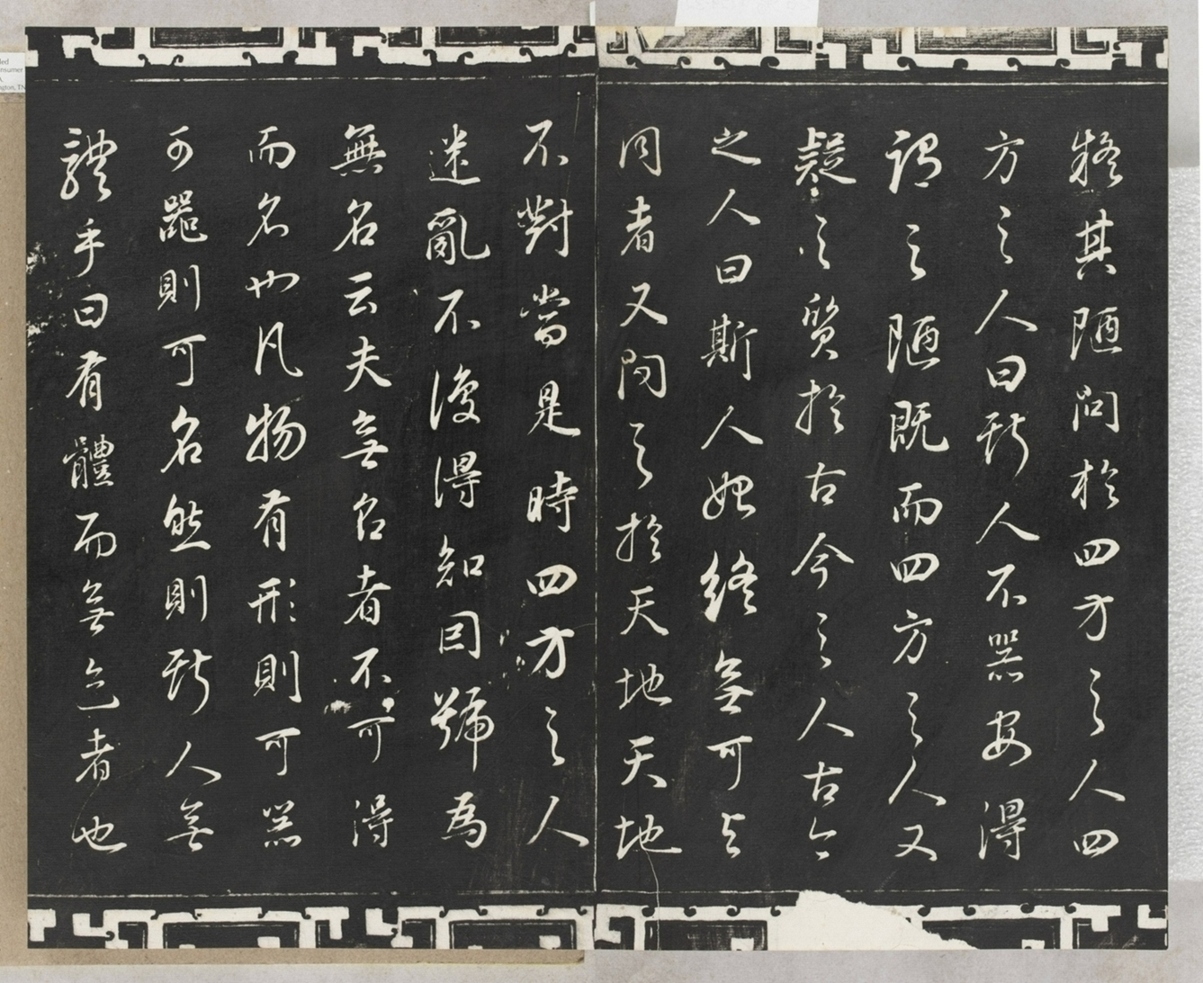 疑其陋問於四方之人四
方之人曰斯人不器安得
謂之陋既而四方之人又
疑之質於古今之人古今
之人曰斯人始終無可與
同者又問之於天地天地
不對當是時四方之人
迷亂不復得知因號為
無名云夫無名者不可得
而名也凡物有形則可器
可器則可名然則斯人無
體乎曰有體而無迹者也